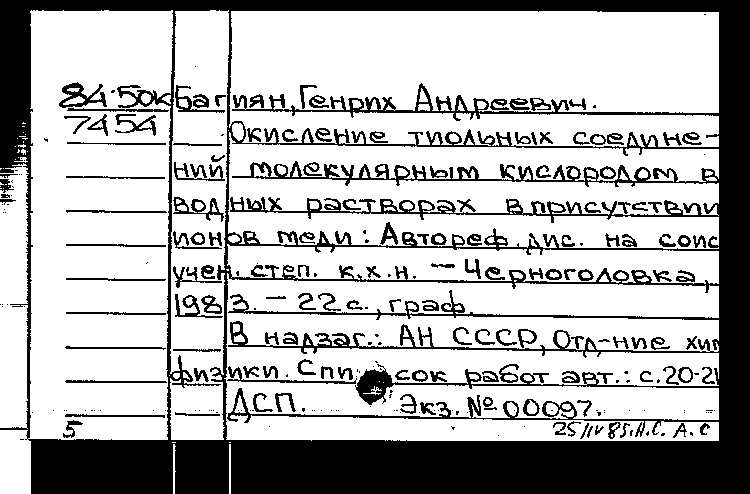 84-50к Багиян, Генрих Андреевич.
7454 Окисление тиольных соедине-
ний молекулярным кислородом в
водных растворах в присутствии
ионов меди: Автореф. дис. на соис
учен. степ. к.х.н. — Черноголовка,
1983. — 22 с., граф.
В надзаг.: АН СССР, Отд-ние хим
физики. Список работ авт.: с.20-21
ДСП. Экз. № 00097.
5 25/IV 85. А. С.